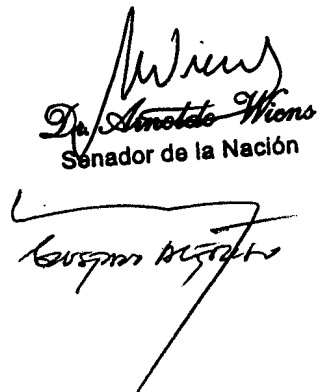 Wiens
Dr. Arnoldo Wiens
Senador de la Nación